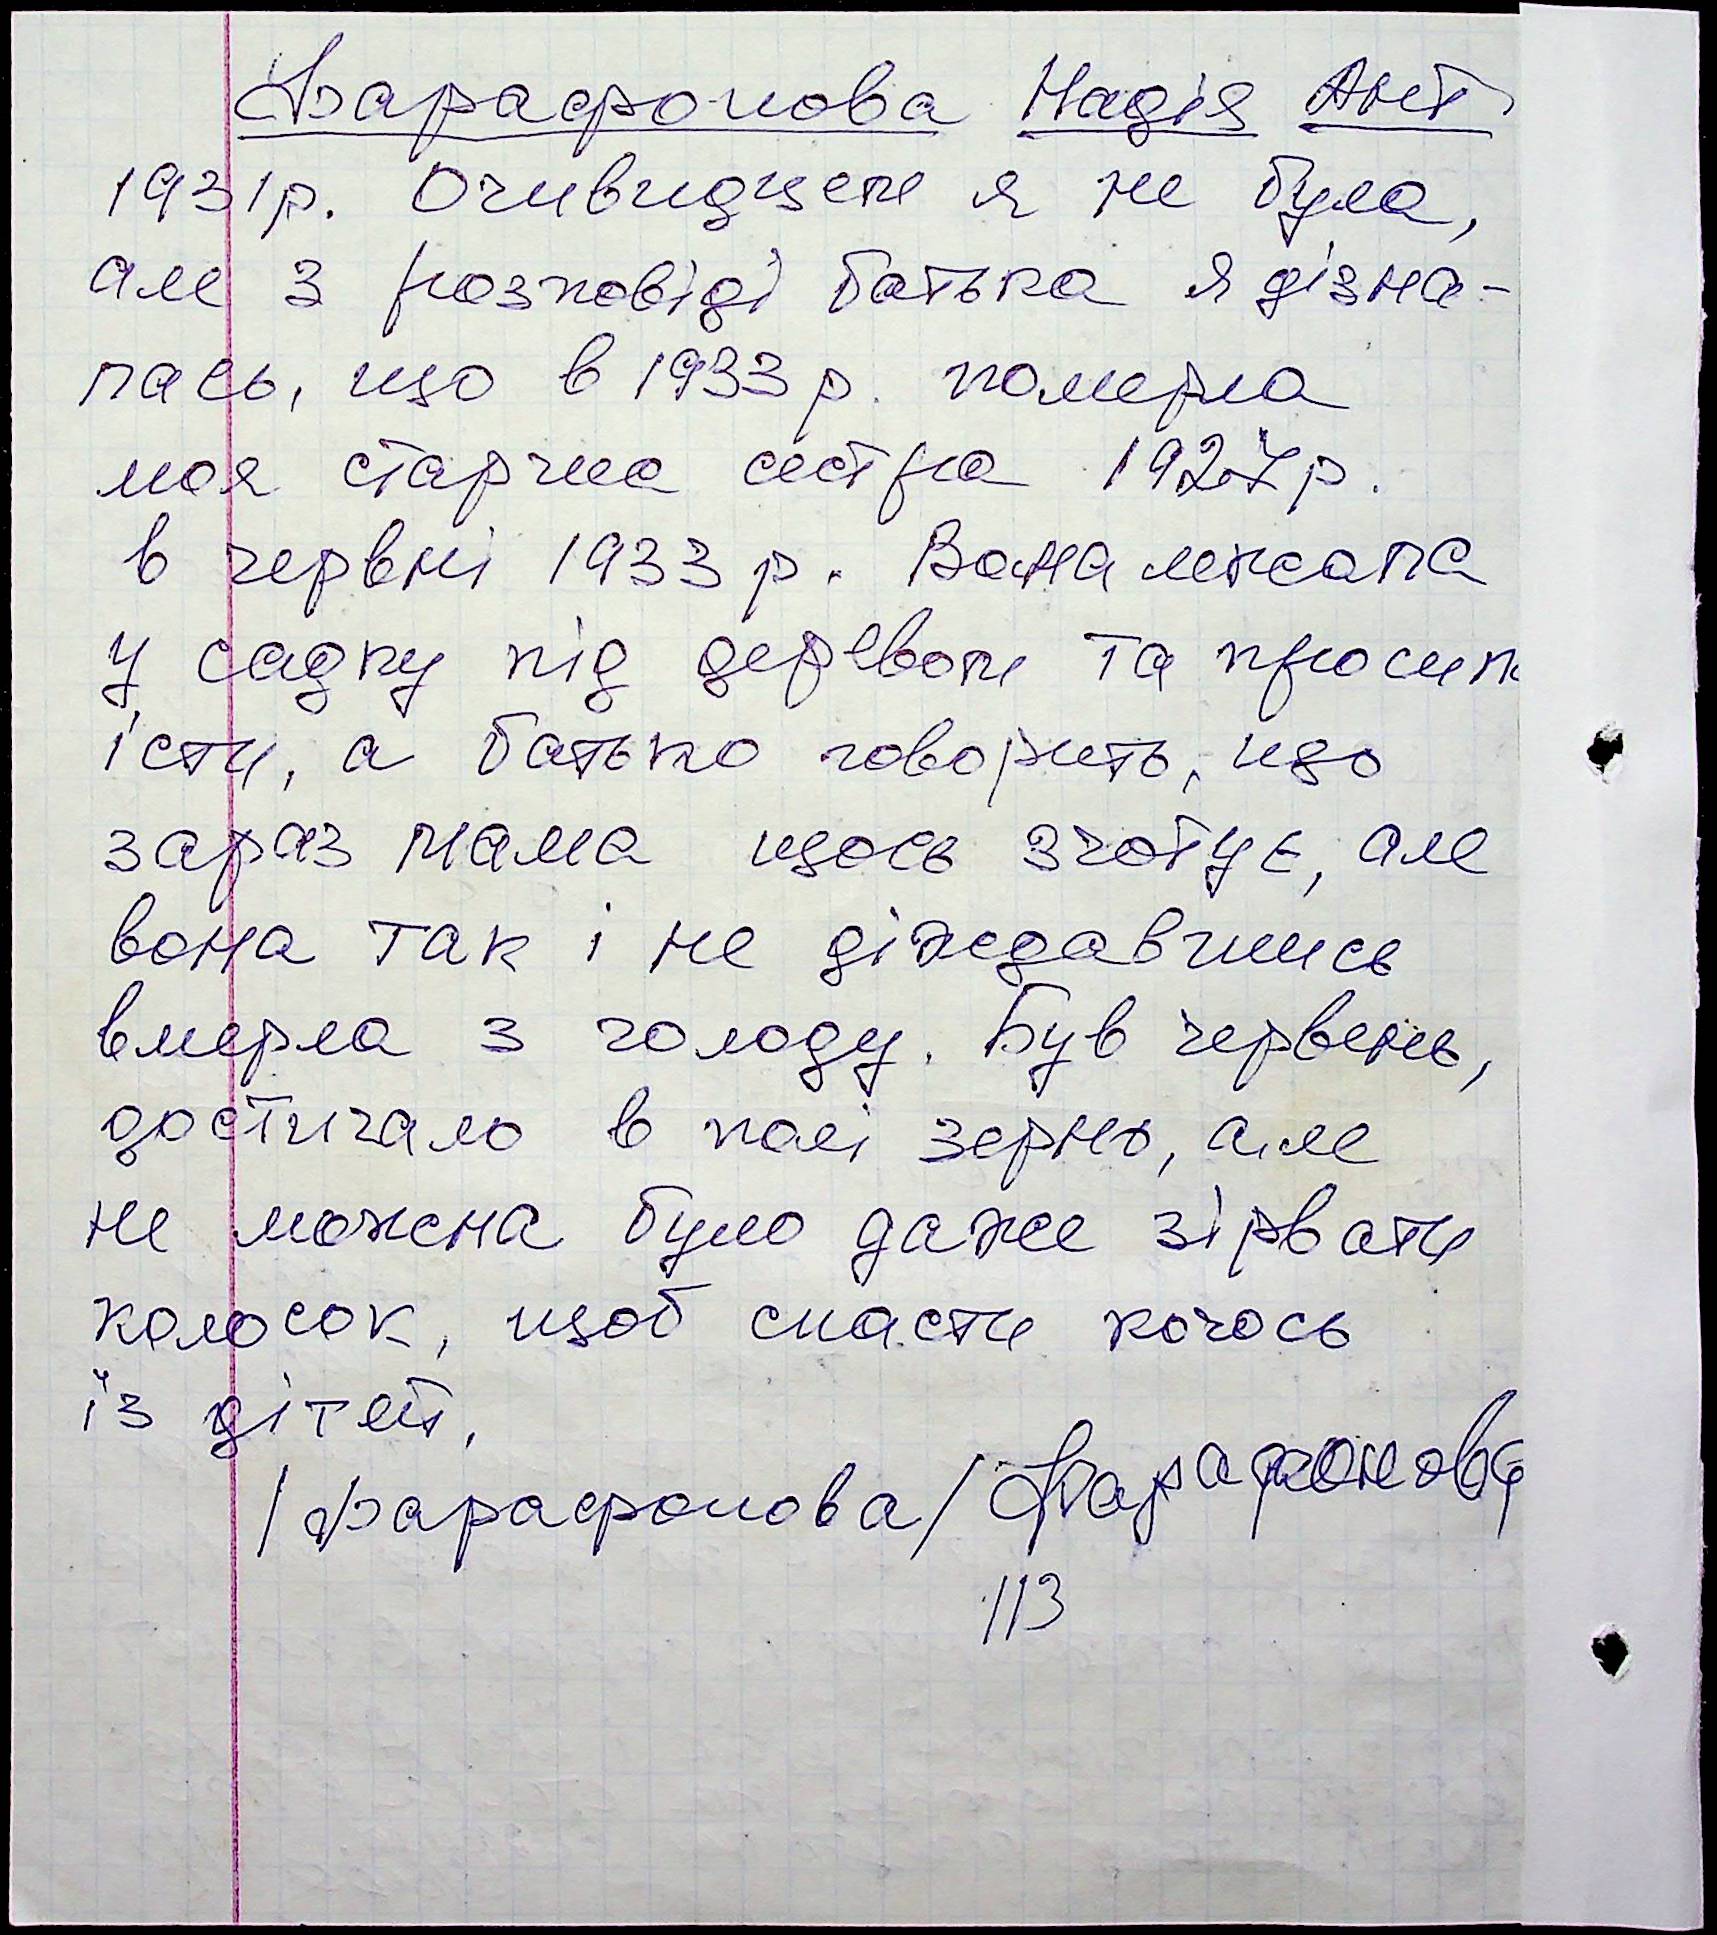 Фарафонова Надія Ант
1931р. Очивидцем я не була,
але з розповіді батька я дізна-
лась, що в 1933 р. померла
моя старша сестра 1927р.
в червні 1933 р. Вона лежала
у садку під деревом та просил
їсти, а батько говорить, що
зараз мама щось зготує, але
вона так і не діждавшись
вмерла з голоду. Був червень,
достигало в полі зерно, але
не можна було даже зірвати
колосок, щоб спасти когось
із дітей.
/Фарафонова/ Фарафонова
113